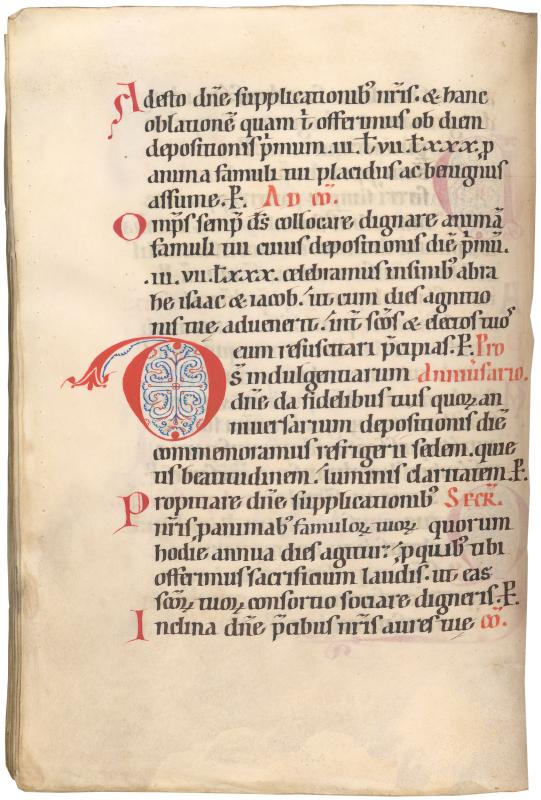 Adesto dñe supplicationib; nr̃is. & hanc
oblationẽ quam t̾ offerimus ob diem
depositionis p̃mum. .iii. ł vii. ł xxx. p
anima famuli tui placidus ac benignus
assume. P. AD CŌ.
Omp̃s semp̃ d̃s collocare dignare animã
famuli tui cuius depositionis diẽ p̃mũ.
.iii. vii. ł xxx. celebramus in sinib; abra
he isaac & iacob. ut cum dies agnitio
nis tuę aduenerit. int̾ sc̃os & electos tuos
eum resuscitari p̃cipias. P. Pro
D s̃ indulgentiarum Anniuersario.
dñe da fidelibus tuis quoꝝ an
niuersarium depositionis diẽ
commemoramus refrigerii sedem. quie
tis beatitudinem. luminis claritatem. P.
Propitiare dñe supplicationib; SECR̃.
nr̃is. p animab; famuloꝝ tuoꝝ quorum
hodie annua dies agitur. p quib; tibi
offerimus sacrificium laudis. ut eas
sc̃oꝝ tuoꝝ consortio sociare digneris. P.
Inclina dñe p̃cibus nr̃is aures tuę CŌ.